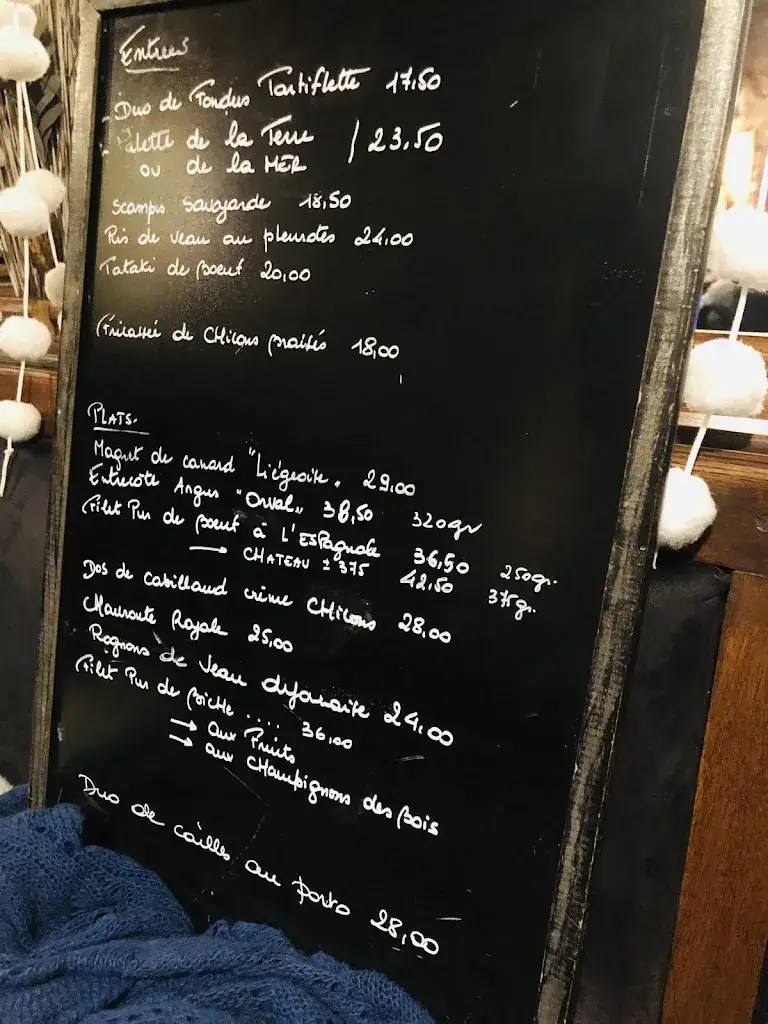 Entrees
- Duo de Fondus Tartiflette 17,50
- Palette de la Terre / 23,50
ou de la MER
Scampis Savoyarde 18,50
Ris de veau au pleurotes 24,00
Tataki de boeuf 20,00
Fricassée de CHicons braisés 18,00
PLATS.
Magret de canard "Liégeoise" 29,00
Entrecôte Angus "Orval" 38,50 320gr
Filet Pur de boeuf à L'ESPagnole 36,50 250gr.
→ CHATEAU ± 375 42,50 375gr.
Dos de cabillaud crème CHicons 28,00
Choucroute Royale 25,00
Rognons de Veau dijonaise 24,00
Filet Pur de biche .... 36,00
→ aux Fruits
→ aux CHampignons des bois
Duo de cailles au porto 28,00